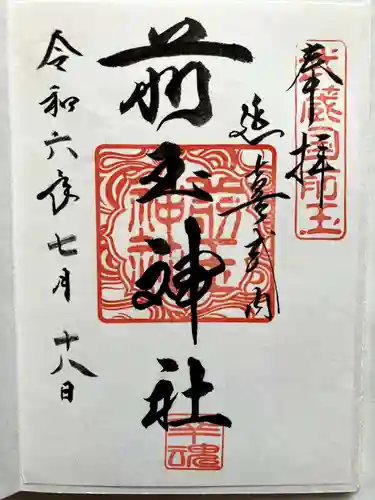 奉拝
武蔵国前玉
延喜式内
前玉神社
前玉神社
幸魂
令和六年七月十八日